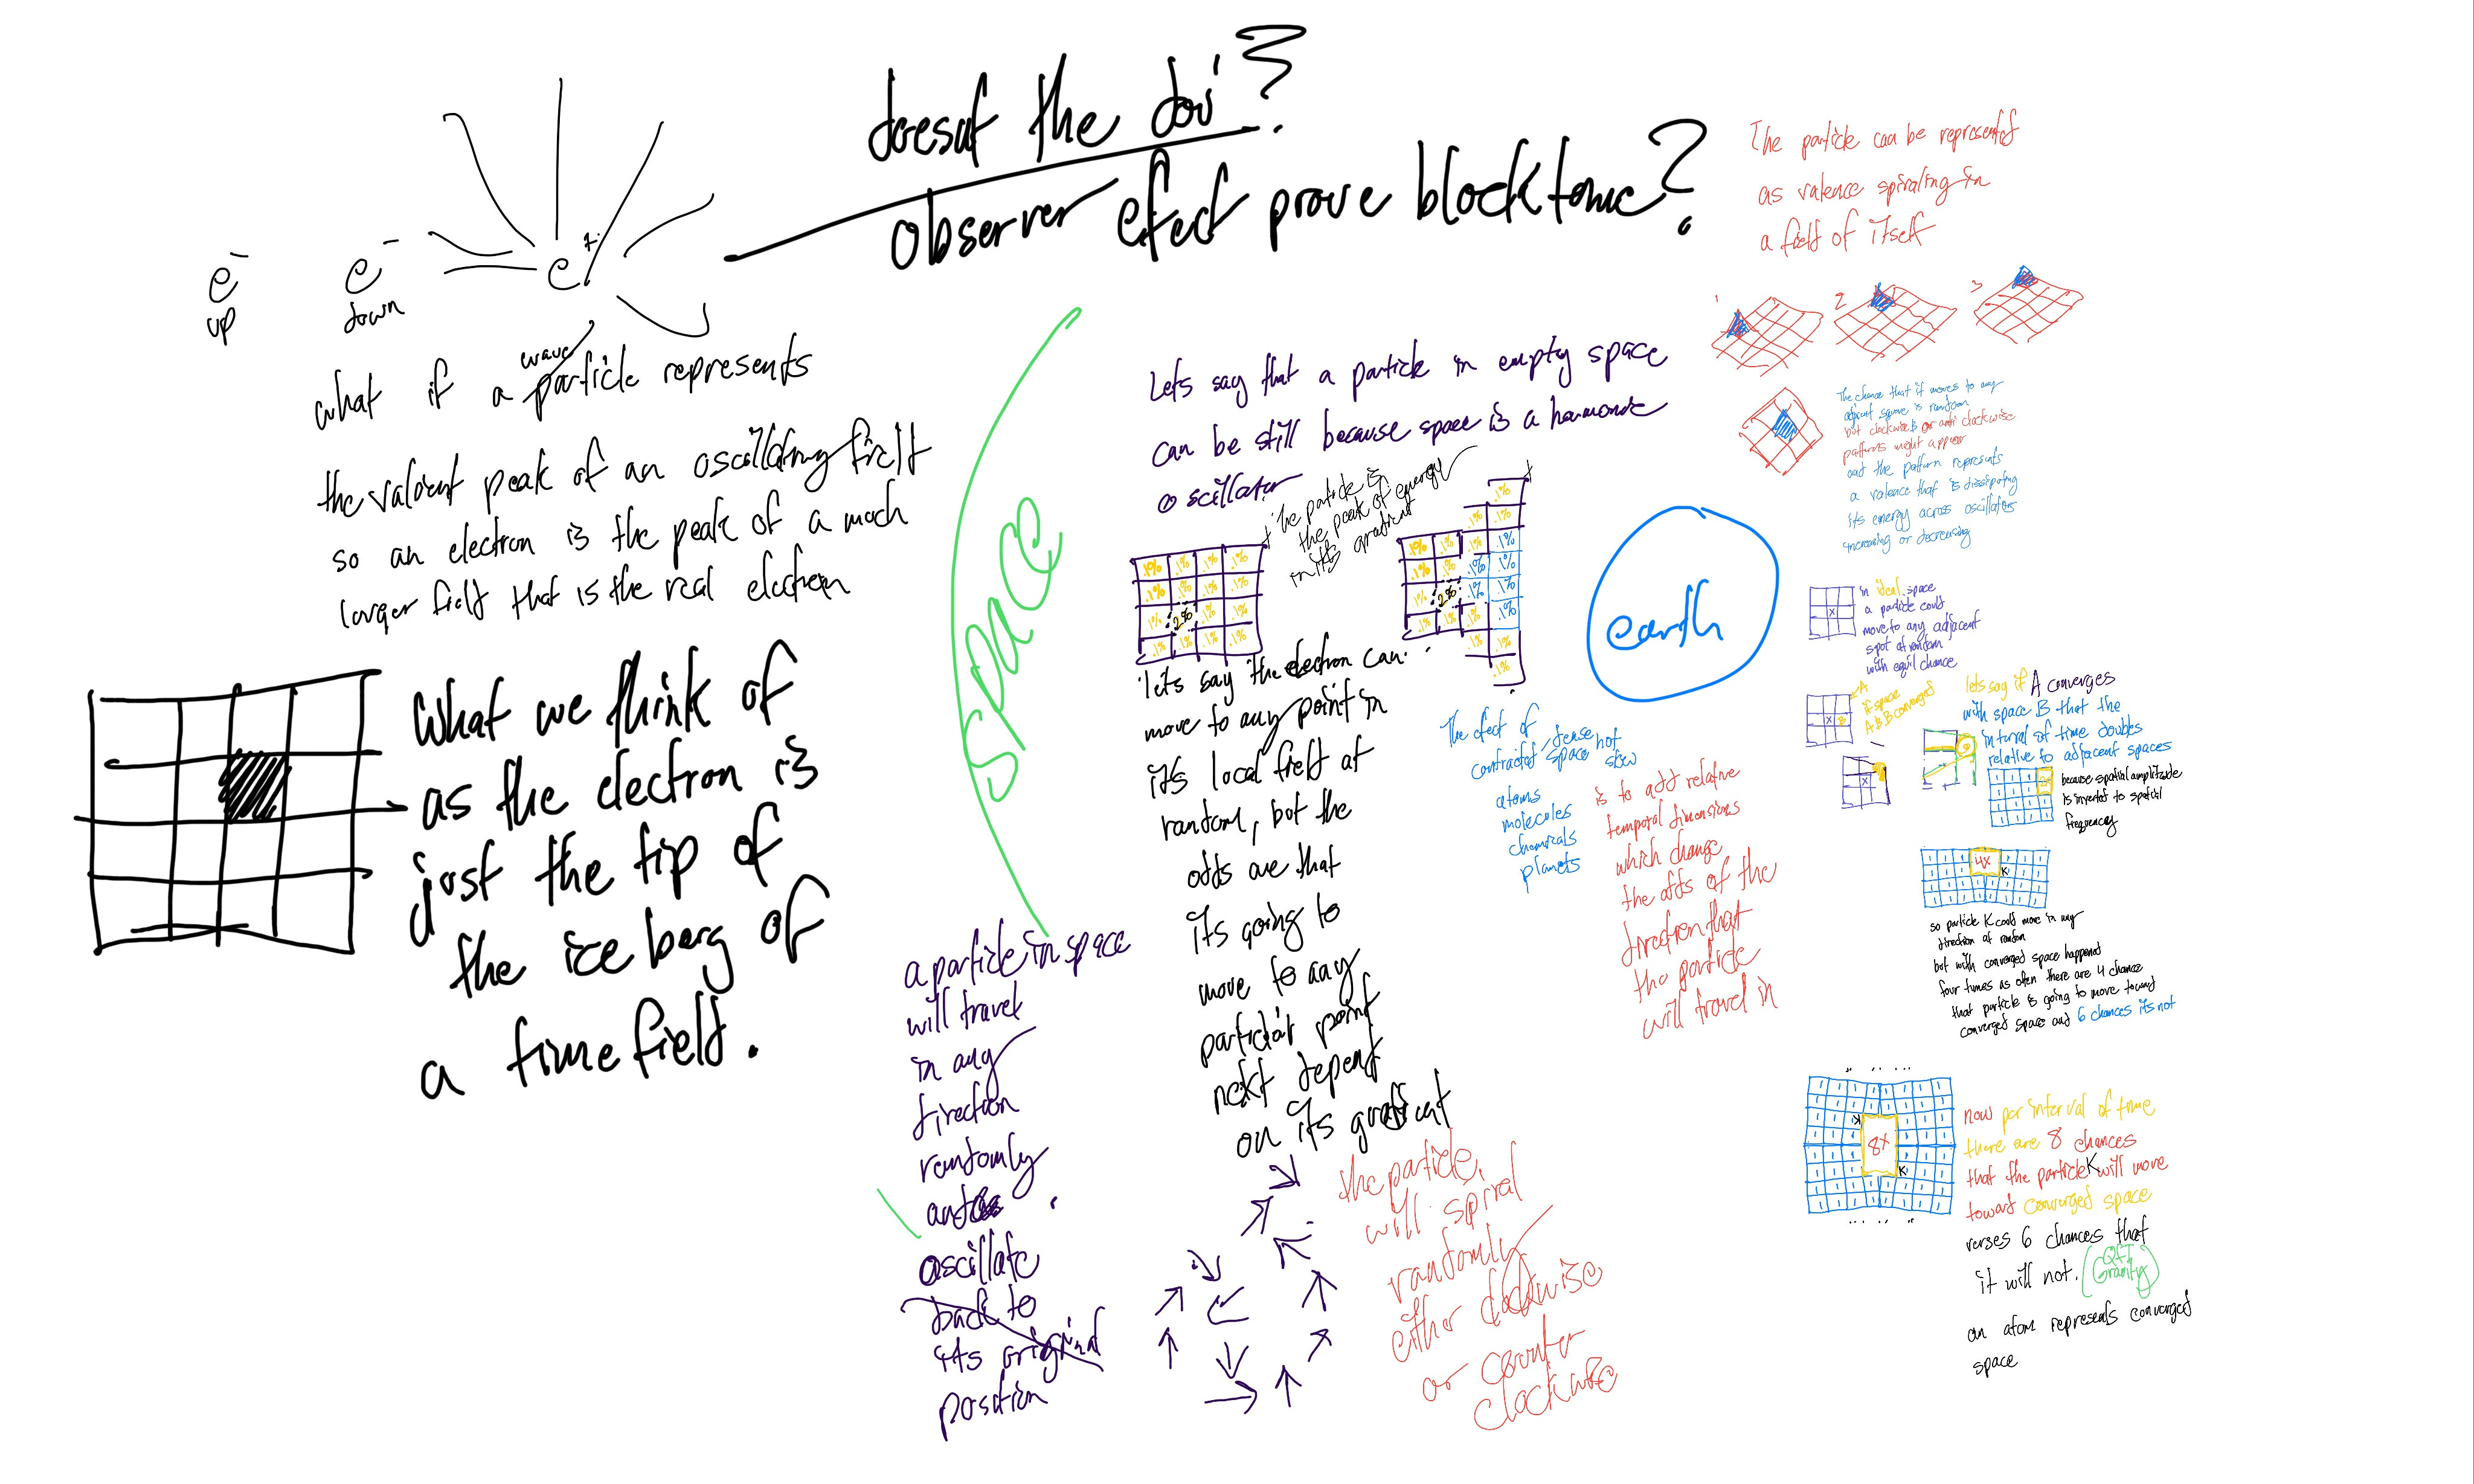 doesnt the
observer efect prove blocktime?
e- up
e- down
e+
what if a particle represents
wave
the valent peak of an oscillating field
so an electron is the peak of a much
larger field that is the real electron
What we think of
as the electron is
just the tip of
the ice berg of
a time field.
space
Lets say that a particle in empty space
can be still because space is a harmonic
oscillator
The particle is
the peak of energy
in its gradient
.1% .1% .1% .1%
.1% .1% .1% .1%
.1% .2% .1% .1%
.1% .1% .1%
.1%
.1% .1%
.1% .1% .1% .1%
.1% .1% .1% .1%
.1% .2% .1% .1%
.1% .1% .1%
.1%
.1%
earth
lets say the electron can
move to any point in
its local field at
random, but the
odds are that
its going to
move to any
point
next depent
on its gradient
a particle in space
will travel
in any
direction
randomly
and
oscillate
back to
its original
position
the particle
will spiral
randomly
either clockwise
or counter
clockwise
The efect of
contracted dense space
hot slow
atoms
molecules
chemicals
planets
is to add relative
temporal dimensions
which change
the odds of the
direction that
the particle
will travel in
The particle can be represented
as valence spiraling in
a field of itself
1 2 3
The chance that it moves to any
adjcent square is random
but clockwise or anti clockwise
patterns might appear
and the pattern represents
a valence that is dissipating
its energy across oscillators
increasing or decreasing
X
in ideal space
a particle could
move to any adjacent
spot at random
with equil chance
A
X B
if space
A & B converged
lets say if A converges
with space B that the
interval of time doubles
relative to adjacent spaces
because spatial amplitude
is inverted to spatial
frequency
X
4x
K
so particle K could move in any
direction at random
but with converged space happened
four times as often there are 4 chance
that particle is going to move toward
converged space and 6 chances its not
K
8x
K
now per interval of time
there are 8 chances
that the particle K will move
toward converged space
verses 6 chances that
it will not. (QFT
Gravity)
an atom represents converged
space